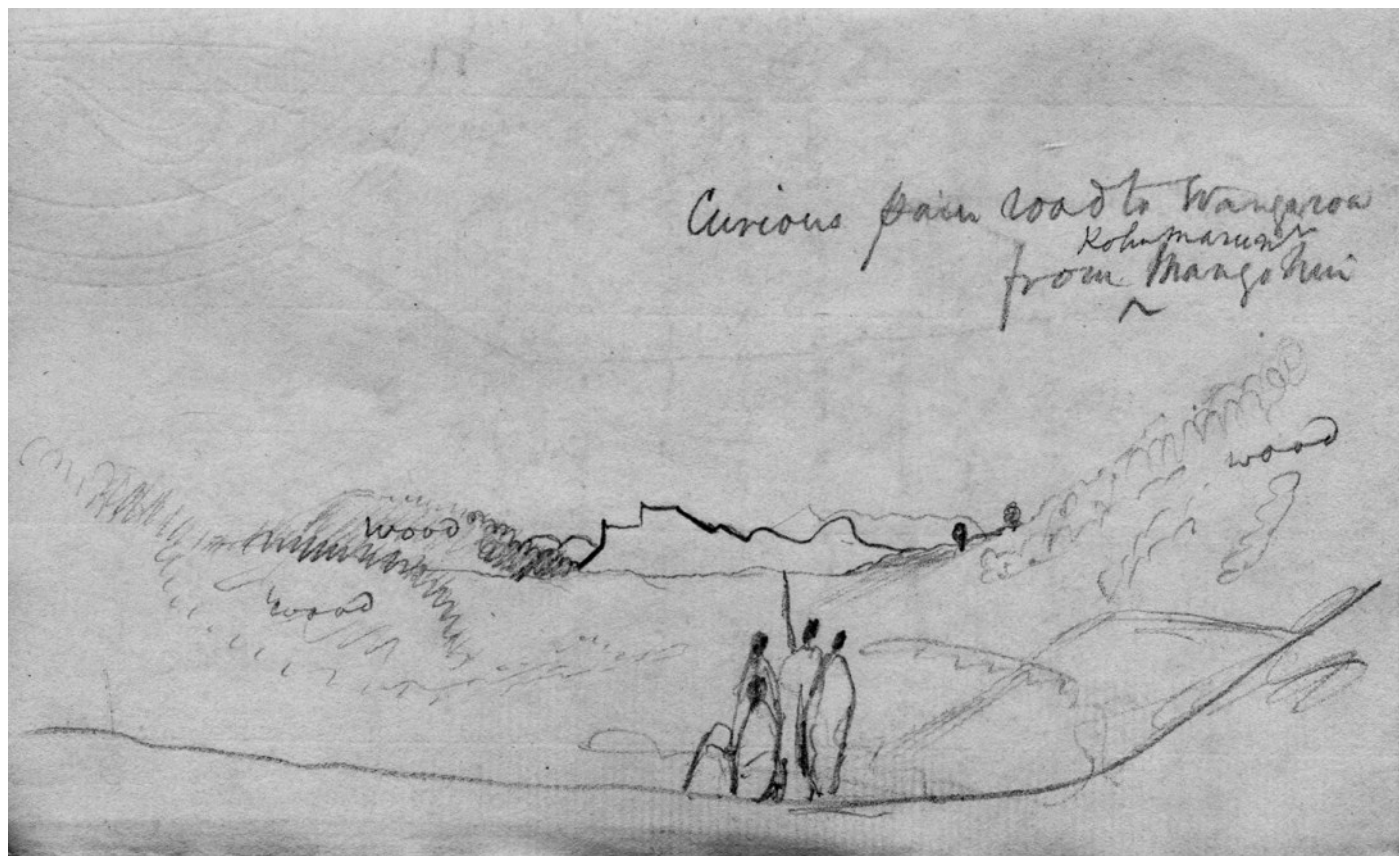 Curious road to Wangaroa
Kohumaru
from Mangonui
wood
wood
wood